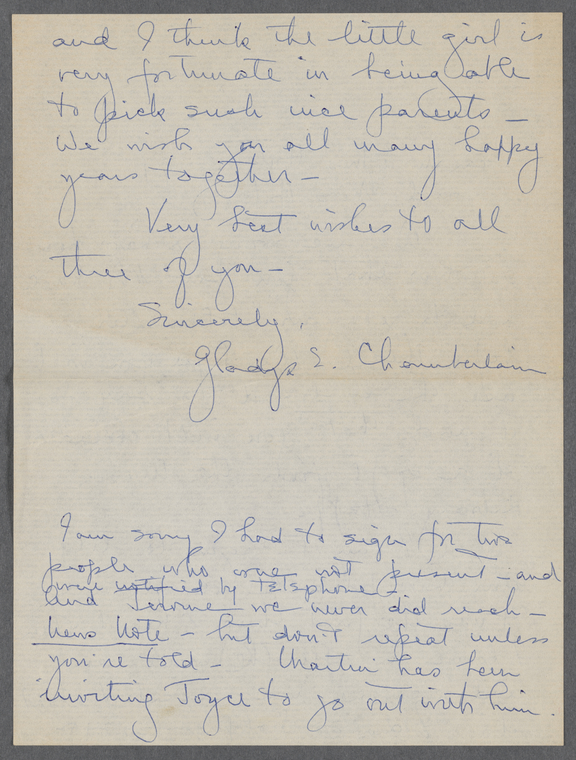 and I think the little girl is
very fortunate in being able
to pick such nice parents —
We wish you all many happy
years together —
Very best wishes to all
three of you —
Sincerely,
Gladys E. Chamberlain
I am sorry I had to sign for two
people who were not present — and
were notified by telephone —
and Jerome we never did reach —
News Note — but don't repeat unless
you're told — Martin has been
inviting Joyce to go out with him.